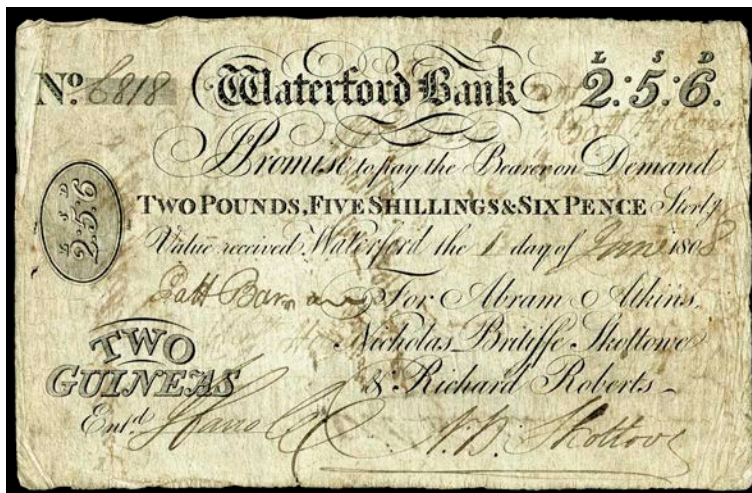 L S D
No. 6818 Waterford Bank 2:5:6.
I Promise to pay the Bearer on Demand
L S D
2:5:6
TWO POUNDS, FIVE SHILLINGS & SIX PENCE Sterl.g
Value received. Waterford the 1 day of June 1808
Patt
For Abram Atkins,
Nicholas Britiffe Skottowe
TWO
GUINEAS
& Richard Roberts
Ent.d
N. B. Skottowe